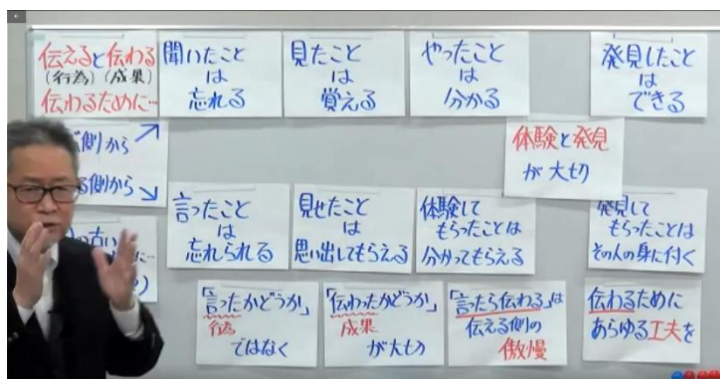 伝えると伝わる
(行為)(成果)
伝わるために…
聞いたこと
は
忘れる
見たこと
は
覚える
やったこと
は
分かる
発見したこと
は
できる
側から
側から
体験と発見
が大切
の古い
言ったこと
は
忘れられる
見せたこと
は
思い出してもらえる
体験して
もらったことは
分かってもらえる
発見して
もらったことは
その人の身に付く
「言ったかどうか」
行為
ではなく
「伝わったかどうか」
成果
が大切
「言ったら伝わる」は
伝える側の
傲慢
伝わるために
あらゆる工夫を